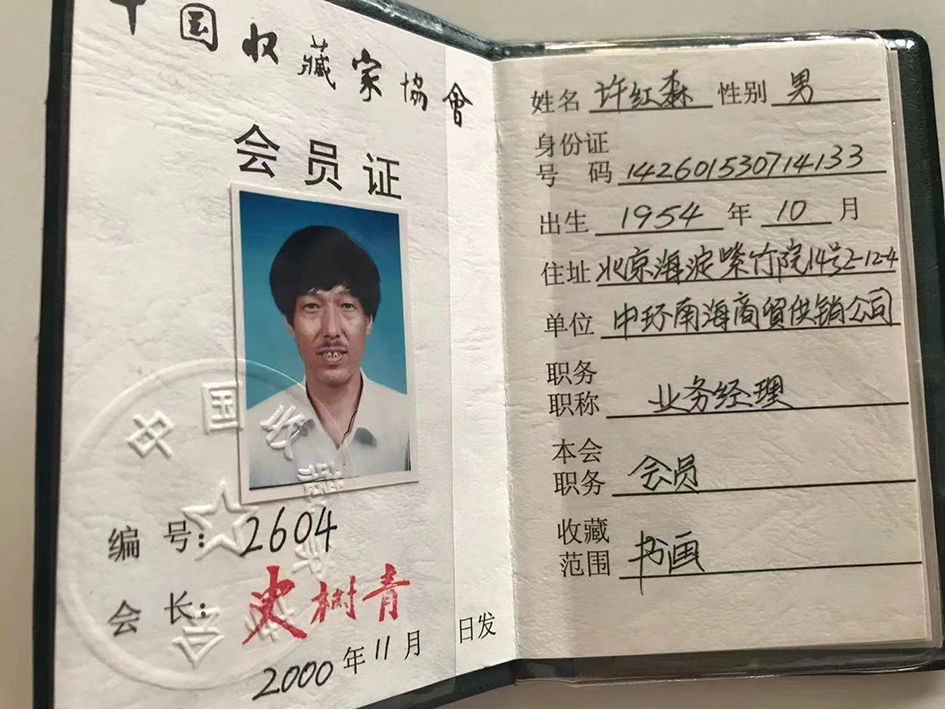 中国收藏家協會
会员证
编号：2604
会长：史树青
2000年11月 日发
中国收藏家协会
姓名 许红森 性别 男
身份证
号码 142601530714133
出生 1954年10月
住址 北京海淀紫竹院14号2-12-4
单位 中环南海商贸供销公司
职务
职称 业务经理
本会
职务 会员
收藏
范围 书画